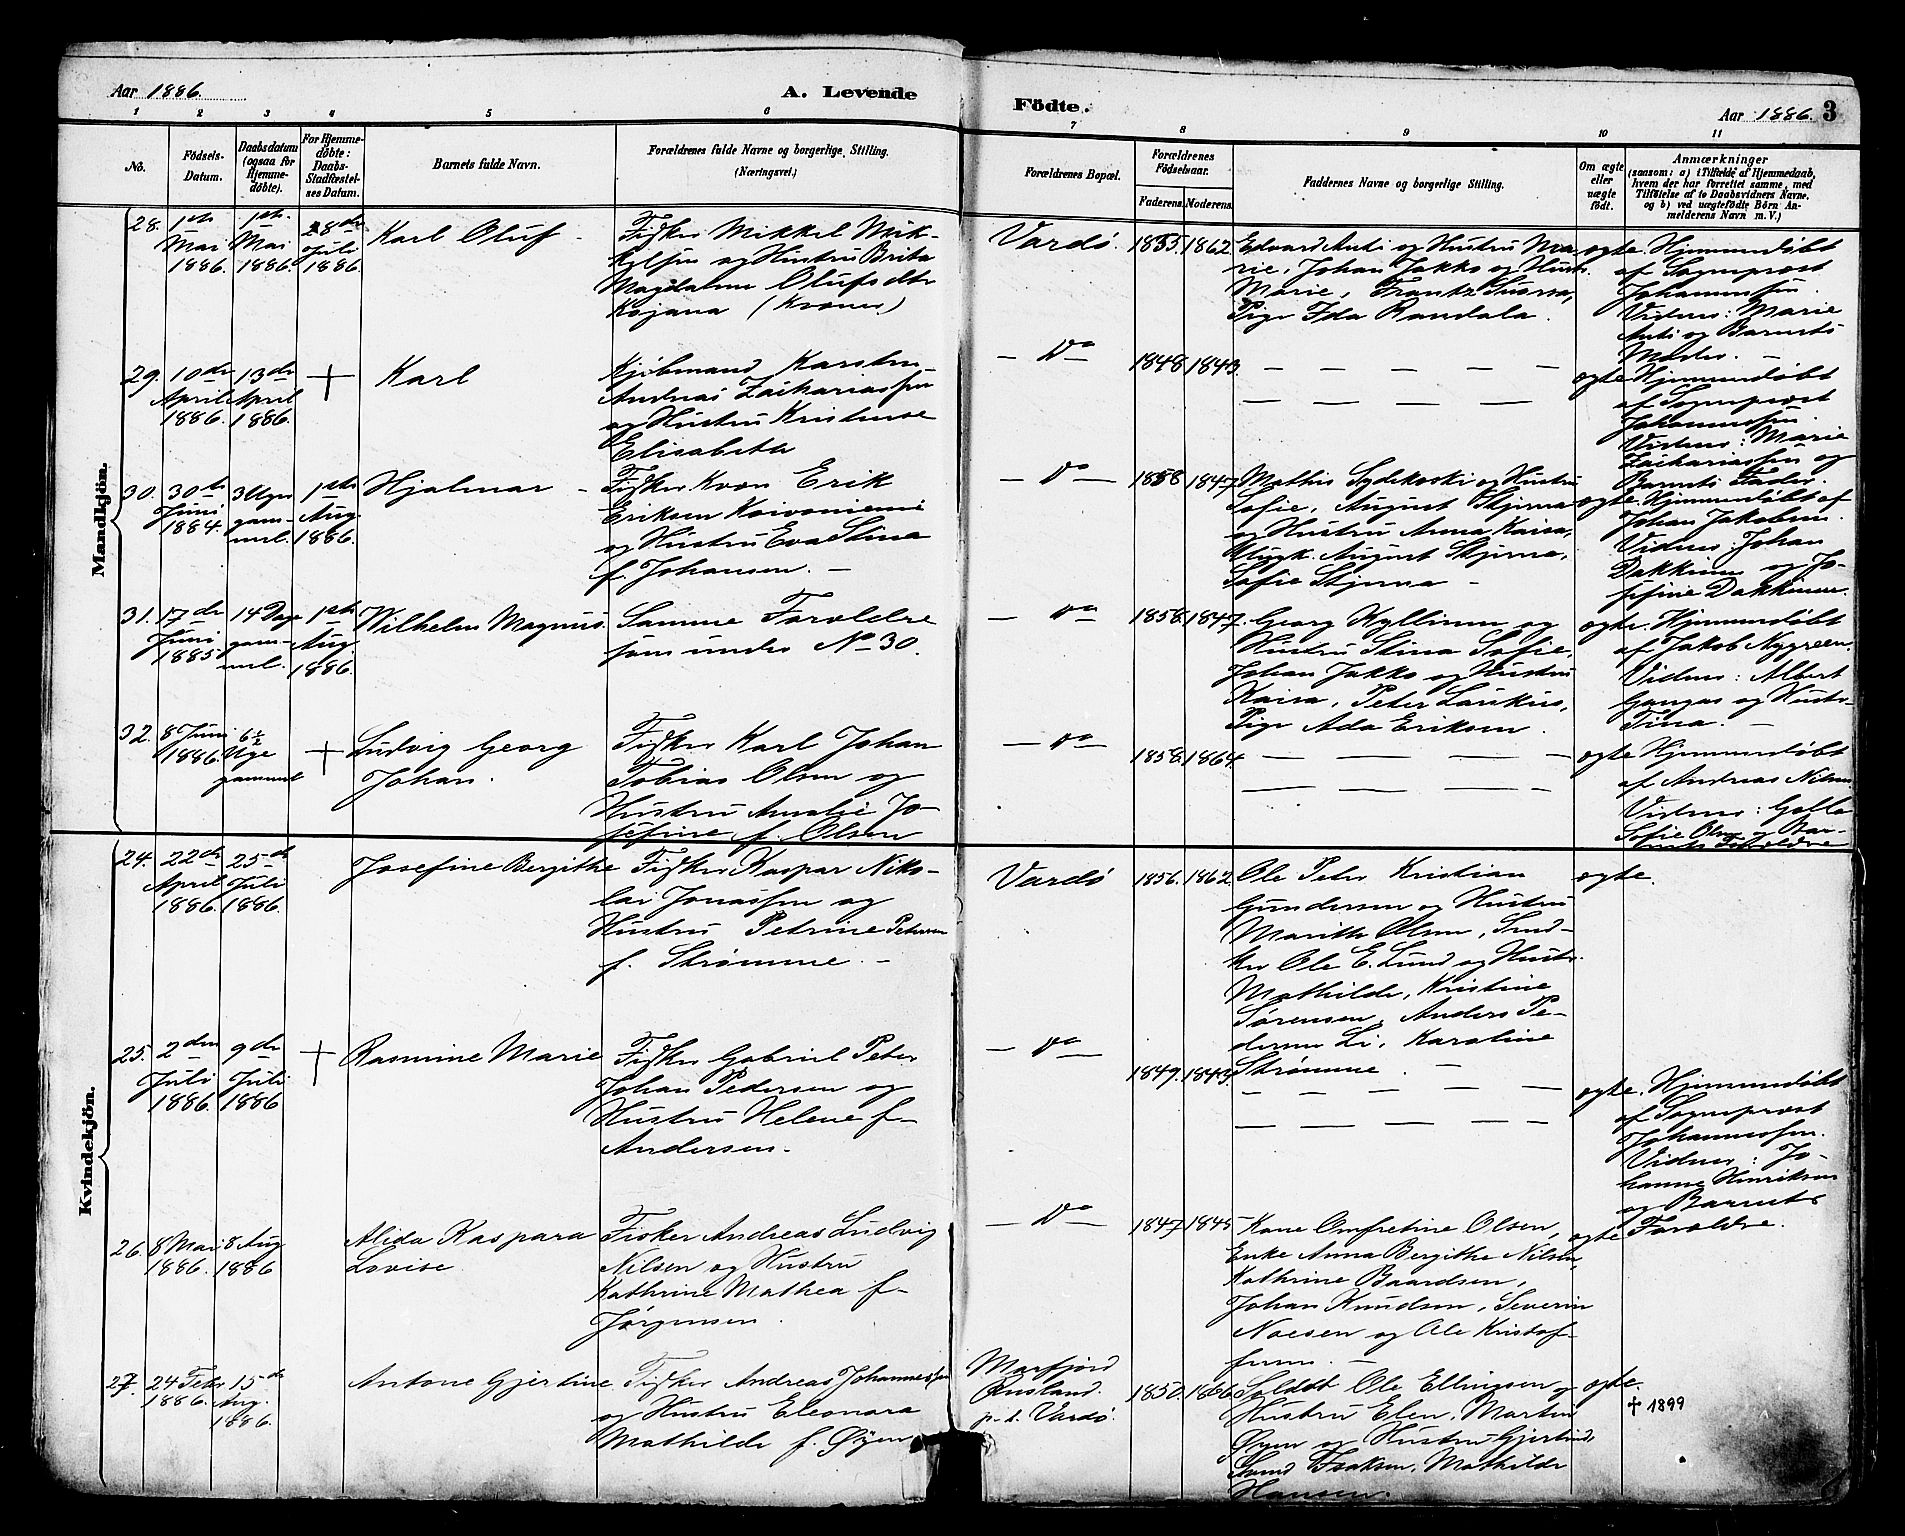 Aar 1886.
A. Levende
Födte.
Aar 1886. 3
1 2 3 4 5 6 7 8 9 10 11
No.
Födsels-Datum.
Daabsdatum (ogsaa for Hjemme-døbte).
For Hjemme-døbte: Daabs-Stadfæstel-ses Datum.
Barnets fulde Navn.
Forældrenes fulde Navne og borgerlige, Stilling.
(Næringsvei.)
Forældrenes Bopæl.
Forældrenes Födselsaar.
Faderens. Moderens.
Faddernes Navne og borgerlige Stilling.
Om ægte eller uægte født.
Anmærkninger
(saasom: a) i Tilfælde af Hjemmedaab,
hvem der har forrettet samme, med
Tilföielse af to Daabsvidners Navne.
og b) ved uægtefödte Börn An-
melderens Navn m. V.)
Mandkjön.
28. 1ste Mai 1886. 1ste Mai 1886. 28de Juli 1886. Karl Oluf -
Fisker Mikkel Mik-
kelsen og Hustru Brita
Magdalena Olufsdtr
Kojana (Kvæner)
Vardø. 1855. 1862.
Edvard Anti og Hustru Ma-
rie, Johan Jakko og Hustr.
Marie, Frantz Suorsa,
Pige Ida Randala.
ægte. Hjemmedøbt
af Sogneprest
Johannessen.
Vidner: Marie
Anti og Barnets
Moder. -
29. 10de April 1886. 13de April 1886. + Karl
Kjøbmand Karsten
Andreas Zachariassen
og Hustru Kristense
Elisabeth
- Do - 1848. 1843. - - - -
ægte. Hjemmedøbt
af Sogneprest
Johannessen
Vidner: Marie
Zachariassen og
Barnets Fader.
30. 30te Juni 1884. 3 Uger gam-mel. 1ste Aug. 1886. Hjalmar -
Fisker Kvæn Erik
Eriksen Koivoniemi
og Hustru Eva Stina
f. Johansen. -
- Do - 1858. 1847.
Mathis Sydekoski og Hustru
Sofie, August Stjerna
og Hustru Anna Kaisa,
Ungk. August Stjerna,
Sofie Stjerna -
ægte. Hjemmedøbt af
Johan Jakobsen.
Vidner: Johan
Dakkinen og Jo-
sefine Dakkinen.
31. 17de Juni 1885. 14 Dage gam-mel. 1ste Aug. 1886. Wilhelm Magnus.
Samme Forældre
som under No 30.
- Do - 1858. 1847.
Georg Kyllinen og
Hustru Stina Sofie,
Johan Jakko og Hustru
Kaisa, Peter Laskus,
Pige Ada Eriksen.
ægte. Hjemmedøbt
af Jakob Nygreen.
Vidner: Albert
Gangas og Hustr.
Tina. -
32. 8 Juni 1886. 6½ Uge gammel + Ludvig Georg
Johan.
Fisker Karl Johan
Tobias Olsen og
Hustru Amalie Jo-
sefine f. Olsen
- Do - 1858. 1864. - - - -
ægte Hjemmedøbt
af Andreas Nilsen
Vidner: Golla
Sofie Olsen og Bar-
nets Forældre
Kvindekjön.
24. 22de April 1886. 25de Juli 1886. Josefine Bergithe
Fisker Kaspar Niko-
lai Jonassen og
Hustru Petrine Petersen
f. Strømme. -
Vardø 1856. 1862.
Ole Peter Kristian
Gundersen og Hustru
Marith Olsen, Sned-
ker Ole E. Lund og Hustr.
Mathilde, Kristine
Sørensen, Anders Pe-
dersen Li, Karoline
Strømme. -
ægte.
25. 2den Juli 1886. 9de Juli 1886 + Rasmine Marie
Fisker Gabriel Peter
Johan Pedersen og
Hustru Helene f-
Andersen.
- Do - 1849. 1843. - - - -
ægte. Hjemmedøbt
af Sogneprest
Johannessen.
Vidner: Jo-
hanne Henriksen
og Barnets
Forældre.
26. 8 Mai 1886. 8 Aug 1886 Alida Kaspara
Lovise
Fisker Andreas Ludvig
Nilsen og Hustru
Kathrine Mathea f-
Jørgensen.
- Do - 1847. 1845
Kone Omfretine Olsen,
Enke Anna Bergithe Nilsen,
Kathrine Baardsen,
Johan Knudsen, Severin
Noesen og Ole Kristof-
fersen. -
ægte
27. 24 Febr 1886. 15de Aug. 1886. Antone Gjertine
Fisker Andreas Johannessen
og Hustru Eleonora
Mathilde f. Øyen
Marfjord
Rusland.
p. t. Vardø. 1850. 1866.
Soldat Ole Ellingsen og
Hustru Elen, Martin
Øyen og Hustru Gjertine,
Svend Isaksen, Mathilde
Hansen.
ægte.
✝ 1899